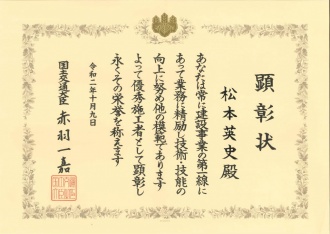 顕彰状
松本英史殿
あなたは常に建設事業の第一線に
あって業務に精励し技術・技能の
向上に努め他の模範であります
よって優秀施工者として顕彰し
永くその栄誉を称えます
令和二年十月九日
国土交通大臣 赤羽一嘉